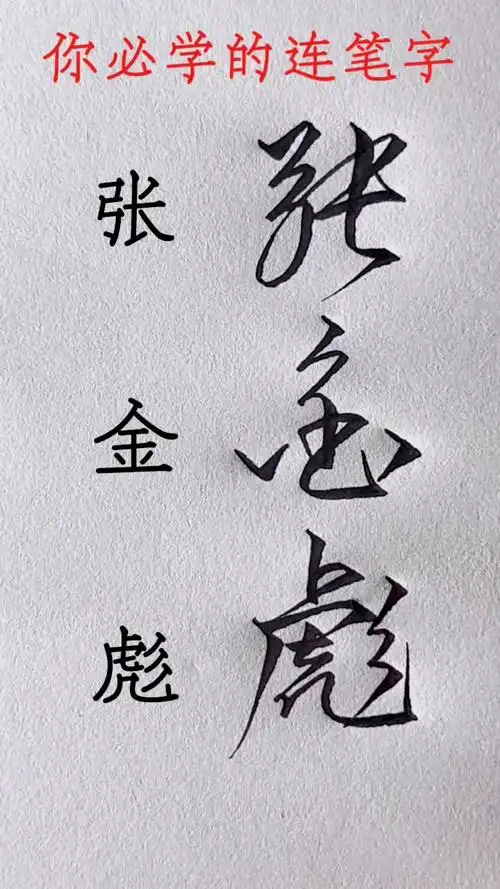 你必学的连笔字
张 张
金 金
彪 彪